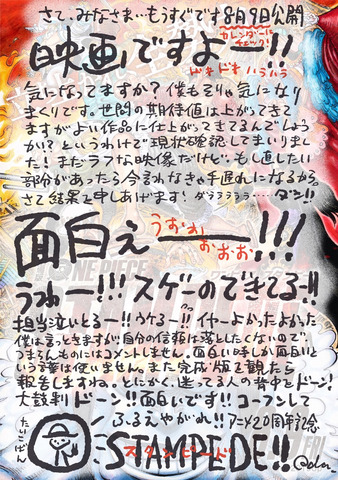 さて、みなさま…もうすぐです8月9日公開
カレンダーに
チェック!
映画ですよー!!
ドキドキハラハラ
気になってますか?僕もそりゃ気になり
まくりです。世間の期待値は上がってきて
ますがよい作品に仕上がってきてるんでしょう
か?というわけで現状確認してまいりまし
た!まだラフな映像だけど、もし直したい
部分があったら今言わなきゃ手遅れになるから。
さて結果を申しあげます!ダララララララ…ダン!!
面白ェー!!!
うおお
おおお!
うわー!!!スゲーのできてるー!!
担当泣いとるー!!ウケるー!!イヤーよかったよかった
僕は言っときますが自分の信頼は落としたくないので、
つまらんものにはコメントしません。面白い時しか面白いと
いう言葉は使いません。また完成版を観たら
報告しますね。とにかく、迷ってる人の背中をドーン!
大鼓判ドーン!!面白いです!!コーフンして
たいこばん
ふるえやがれ!!アニメ20周年記念
STAMPEDE!!
スタンピード
ONE PIECE